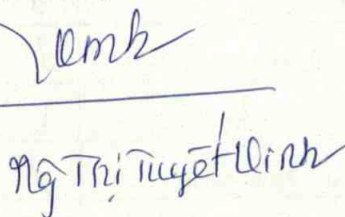 Vinh
Ng Thị Tuyết Vinh